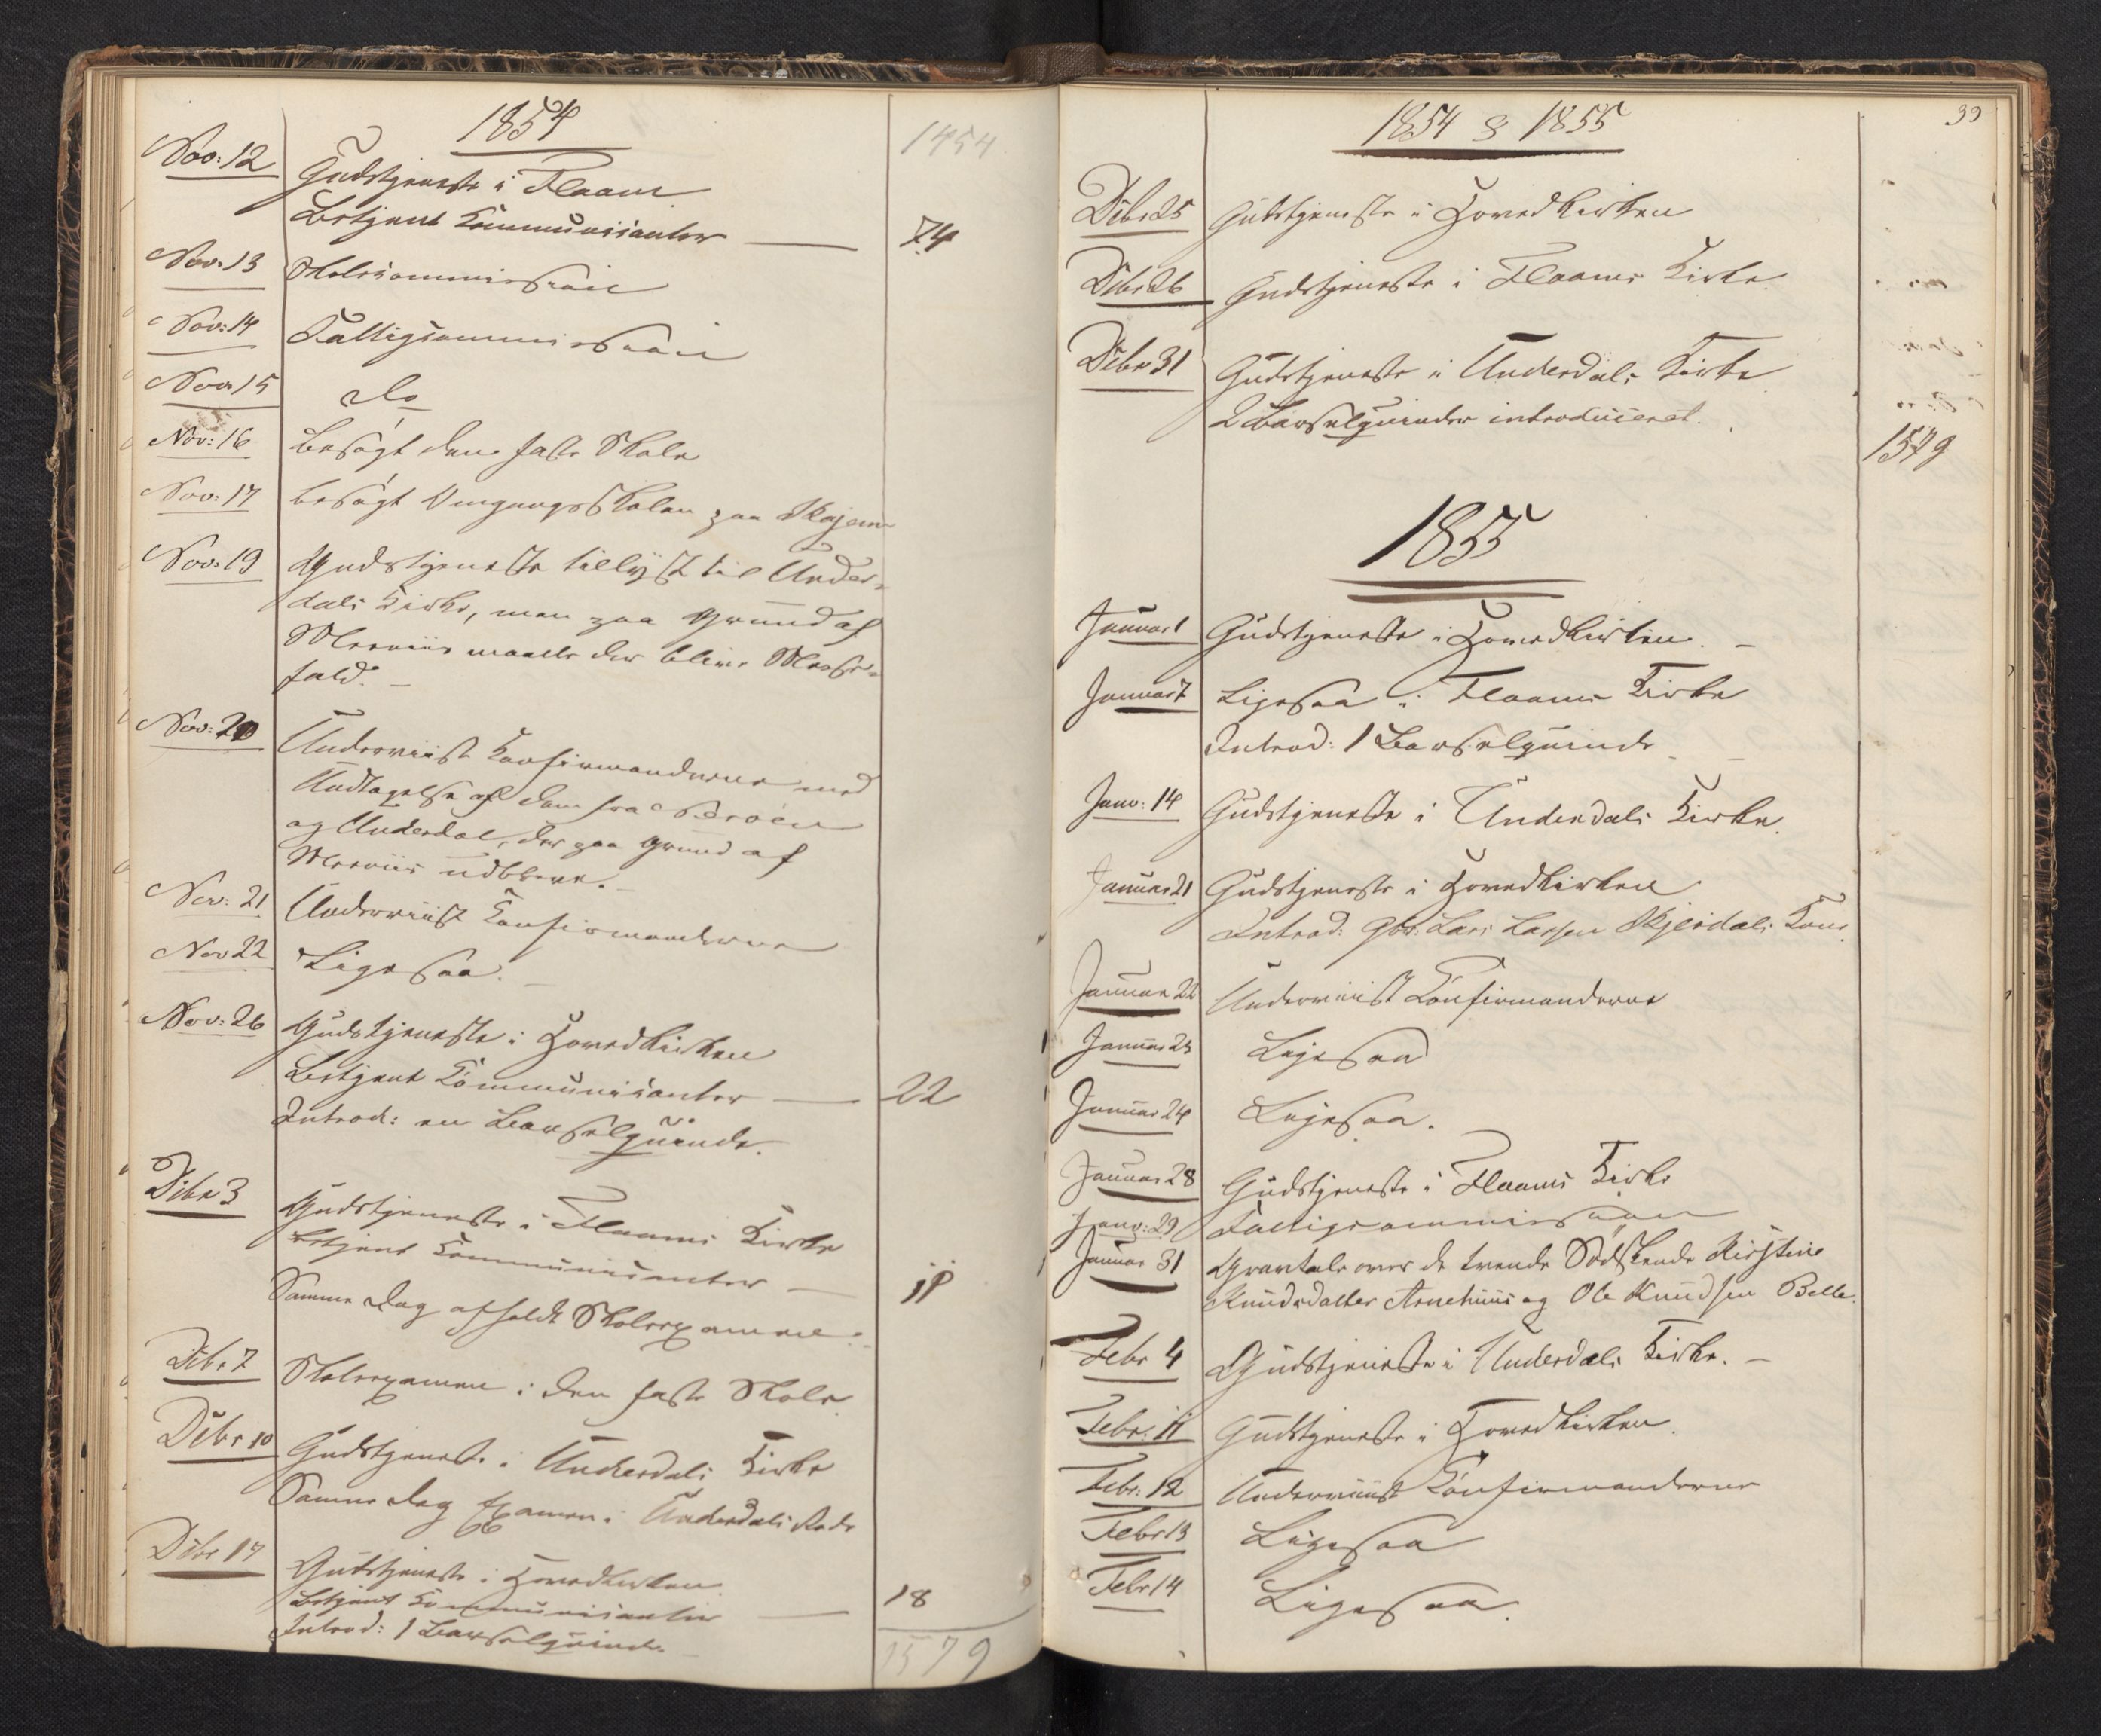 1854
1454
Nov: 12 Gudstjeneste i Flaam
Betjent Communicanter — 74
Nov: 13 Skolecommission
Nov: 14 Fattigcommission
Nov: 15 Do
Nov: 16 Besøgt den faste Skole
Nov: 17 besøgt Omgangsskolen paa
Nov: 19 Gudstjeneste tillyst til Under-
dals Kirke, men paa Grund af
Meeniis maatte der blive Messe-
fald. —
Nov: 20 Underviist Confirmanderne med
Undtagelse af dem fra
og Underdal, der paa Grund af
Meeniis udbleve. —
Nov: 21 Underviist Confirmanderne
Nov 22 Ligesaa. —
Nov: 26 Gudstjeneste i Hovedkirken
Betjent Communicanter — 22
Introd: en Barselquinde.
Dcbr 3 Gudstjeneste i Flaams Kirke
Betjent Communicanter — 11
Samme Dag afholdt Skoleexamen
Dcbr 7 Skoleexamen i den faste Skole
Dcbr 10 Gudstjeneste i Underdals Kirke
Samme Dag Examen i Underdals Rode
Dcbr 17 Gudstjeneste i Hovedkirken
Betjent Communicanter — 18
Introd: 1 Barselquinde. —
1579
39
1854 & 1855
Dcbr 25 Gudstjeneste i Hovedkirken
Dcbr 26 Gudstjeneste i Flaams Kirke.
Dcbr 31 Gudstjeneste i Underdals Kirke
2 Barselquinder introduceret.
1579
1855
Januar 1 Gudstjeneste i Hovedkirken. —
Januar 7 Ligesaa i Flaams Kirke
Introd: 1 Barselquinde —
Janv: 14 Gudstjeneste i Underdals Kirke.
Januar 21 Gudstjeneste i Hovedkirken
Introd: Gbr: Lars Larsen Skjerdals Kone
Januar 22 Underviist Confirmanderne
Januar 23 Ligesaa
Januar 24 Ligesaa.
Januar 28 Gudstjeneste i Flaams Kirke
Janv: 29 Fattigcommission
Januar 31 Gravtale over de tvende Sødskende Kirstine
Knudsdatter Arnehuus og Ole Knudsen Belle.
Febr 4 Gudstjeneste i Underdals Kirke. —
Febr. 11 Gudstjeneste i Hovedkirken.
Febr: 12 Underviist Confirmanderne
Febr 13 Ligesaa
Febr 14 Ligesaa.